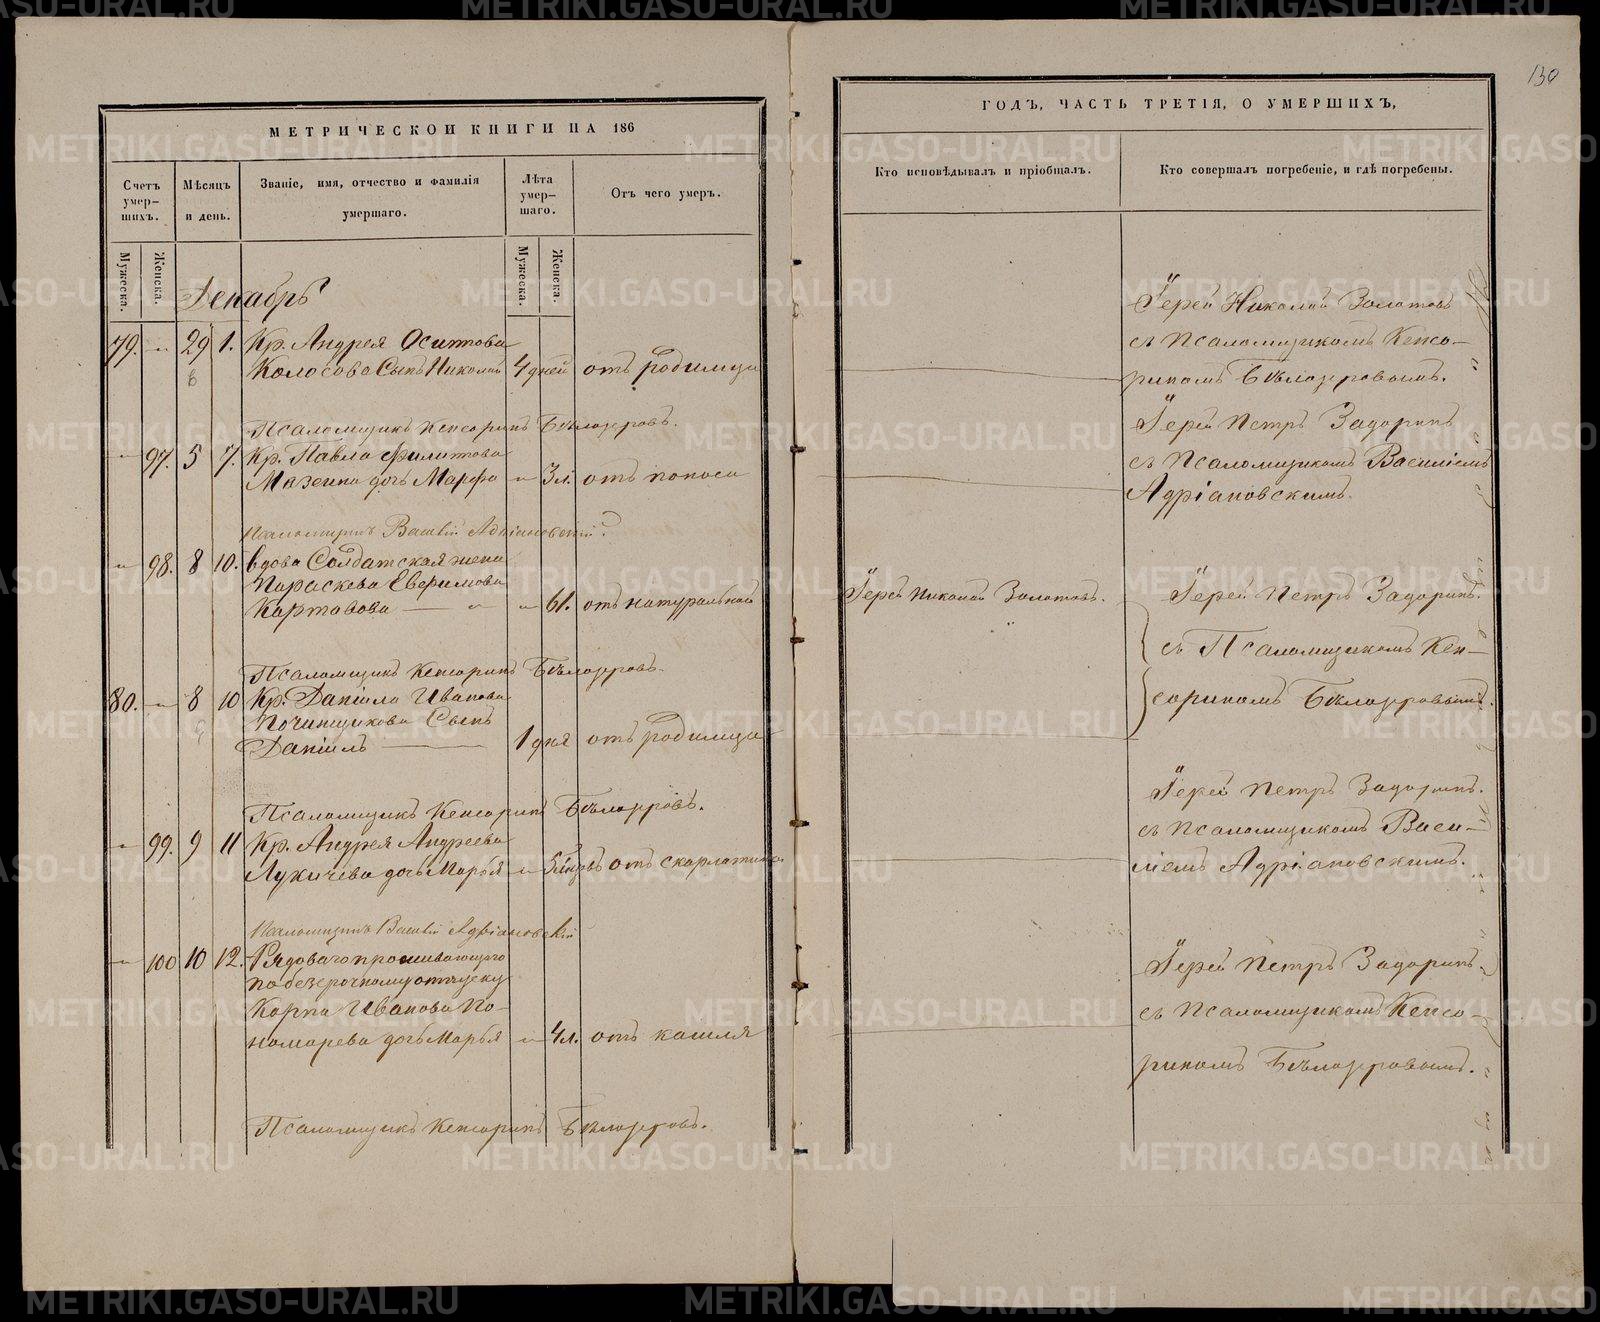 130
МЕТРИЧЕСКОЙ КНИГИ НА 186
Счетъ умер-шихъ.
Мѣсяцъ и день.
Званіе, имя, отчество и фамилія умершаго.
Лѣта умер-шаго.
Отъ чего умеръ.
Мужеска.
Женска.
Мужеска.
Женска.
Декабрь
79. — 29 1. Кр. Андрея Осипова
Колосова Сынъ Николай 4 дней отъ родимца
Псаломщикъ Кенсоринъ Бѣлозеровъ.
97. 5 7. Кр. Павла Филипова
Мазеина дочь Марфа 3 л. отъ поноса
Псаломщикъ Василій Адріановскій
98. 8 10. вдова Солдатская жена
Параскева Евфимова
Картавова 61. отъ натуральной
Псаломщикъ Кенсоринъ Бѣлозеровъ.
80. — 8 10 Кр. Даніила Иванова
Починщикова Сынъ
Даніилъ 1 дня отъ родимца
Псаломщикъ Кенсоринъ Бѣлозеровъ.
99. 9 11 Кр. Андрея Андреева
Лукичева дочь Марья 5 отъ скарлатины
Псаломщикъ Василій Адріановскій
100 10 12. Рядоваго проживающаго
по безсрочному отпуску
Карпа Иванова По-
номарева дочь Марья 4 л. отъ кашля
Псаломщикъ Кенсоринъ Бѣлозеровъ.
ГОДЪ, ЧАСТЬ ТРЕТІЯ, О УМЕРШИХЪ,
Кто исповѣдывалъ и пріобщалъ.
Кто совершалъ погребеніе, и гдѣ погребены.
Іерей Николай Золотовъ
съ Псаломщикомъ Кенсо-
риномъ Бѣлозеровымъ.
Іерей Петръ Задоринъ
съ Псаломщикомъ Василіемъ
Адріановскимъ.
Іерей Николай Золотовъ.
Іерей Петръ Задоринъ.
съ Псаломщикомъ Кен-
сориномъ Бѣлозеровымъ.
Іерей Петръ Задоринъ.
съ Псаломщикомъ Васи-
ліемъ Адріановскимъ.
Іерей Петръ Задоринъ
съ Псаломщикомъ Кенсо-
риномъ Бѣлозеровымъ.
METRIKI.GASO-URAL.RU